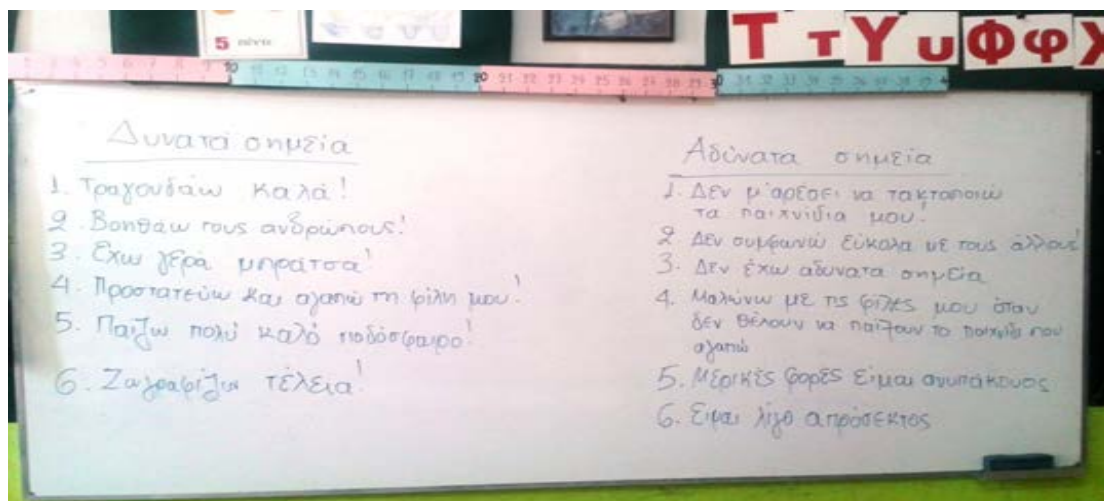 5 πέντε
Τ τ Υ υ Φ φ Χ
Δυνατά σημεία
1. Τραγουδάω καλά!
2. Βοηθάω τους ανθρώπους!
3. Έχω γερά μπράτσα!
4. Προστατεύω και αγαπώ τη φίλη μου!
5. Παίζω πολύ καλό ποδόσφαιρο!
6. Ζωγραφίζω τέλεια!
Αδύνατα σημεία
1. Δεν μ'αρέσει να τακτοποιώ
τα παιχνίδια μου!
2. Δεν συμφωνώ εύκολα με τους άλλους!
3. Δεν έχω αδύνατα σημεία
4. Μαλώνω με τις φίλες μου όταν
δεν θέλουν να παίξουν το παιχνίδι που
αγαπώ
5. Μερικές φορές είμαι ανυπάκουος
6. Είμαι λίγο απρόσεκτος